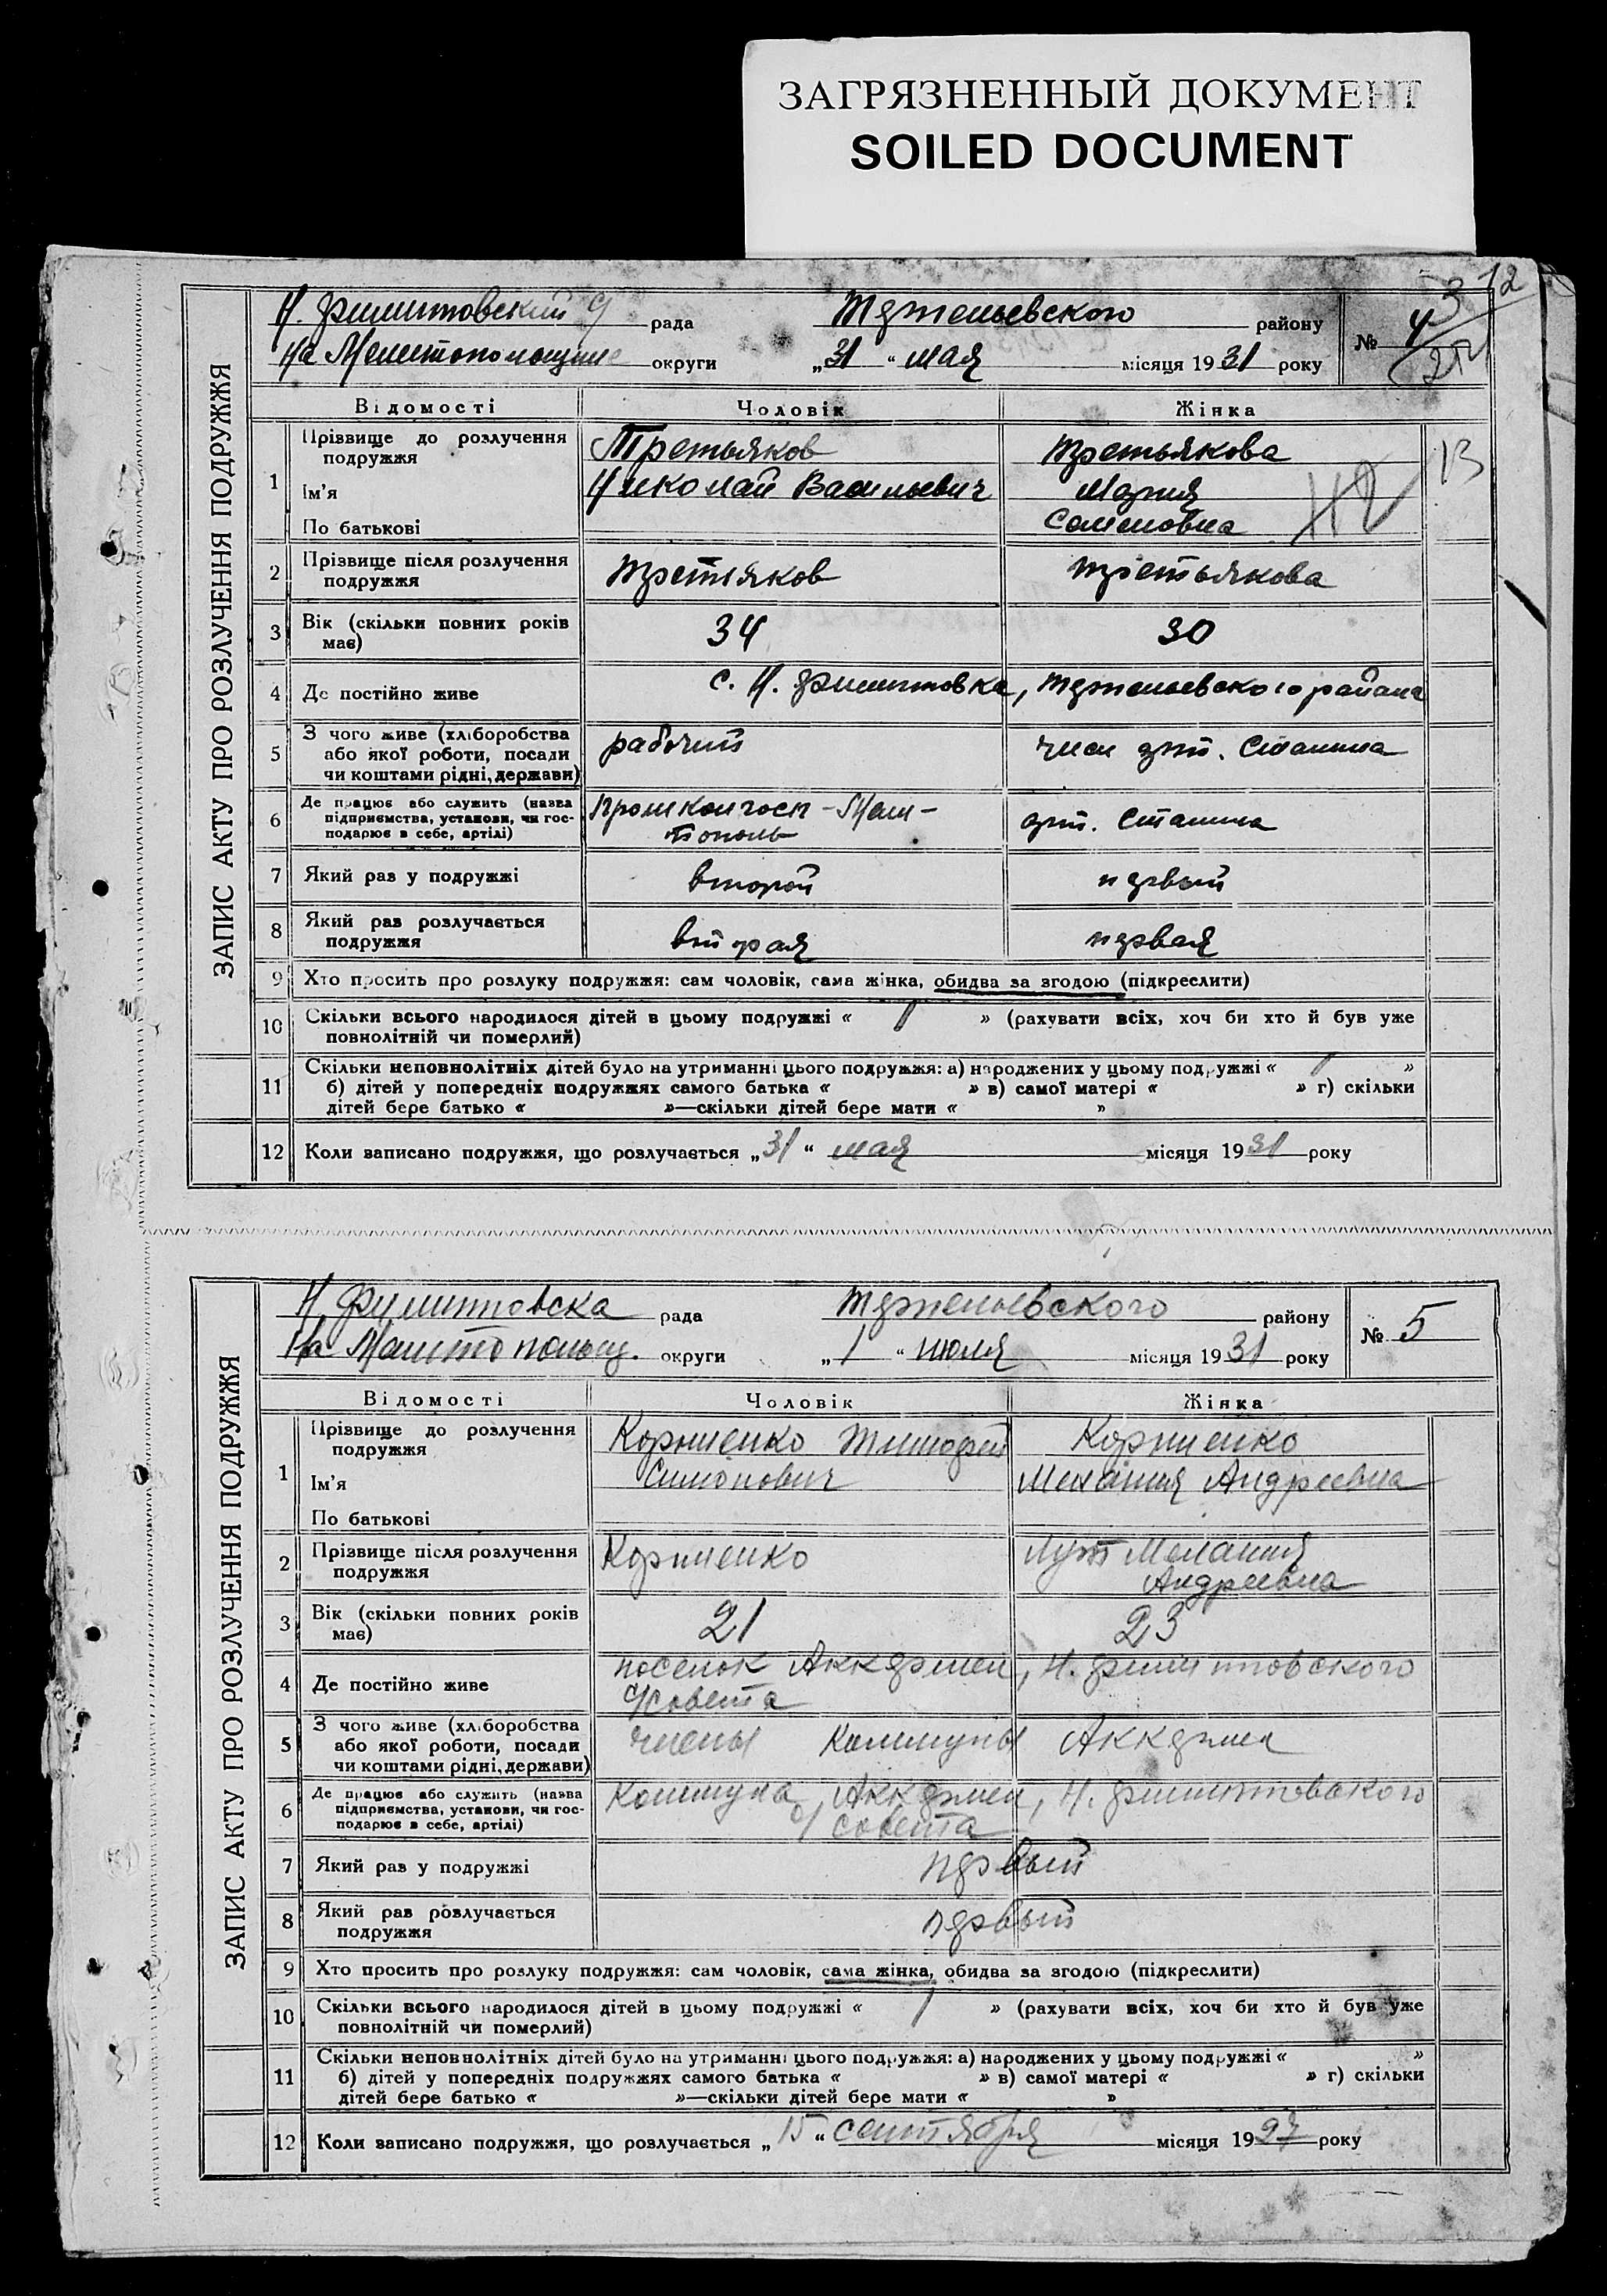 ЗАГРЯЗНЕННЫЙ ДОКУМЕНТ
SOILED DOCUMENT
ЗАПИС АКТУ ПРО РОЗЛУЧЕННЯ ПОДРУЖЖЯ
Н. Филипповский рада Терпеньевского району № 4
На Мелитопольщине округи „31“ мая місяця 1931 року
Відомості Чоловік Жінка
1 Прізвище до розлучення подружжя Третьяков Третьякова
Ім'я Николай Васильевич Мария
По батькові Семеновна
13
2 Прізвище після розлучення подружжя Третьяков Третьякова
3 Вік (скільки повних років має) 34 30
4 Де постійно живе с. Н. Филипповка, Терпеньевского района
5 З чого живе (хліборобства
або якої роботи, посади
чи коштами рідні, держави) рабочий член арт. Сталина
6 Де працює або служить (назва
підприємства, установи, чи гос-
подарює в себе, артілі) Мели-
тополь арт. Сталина
7 Який раз у подружжі второй первый
8 Який раз розлучається
подружжя вторая первая
9 Хто просить про розлуку подружжя: сам чоловік, сама жінка, обидва за згодою (підкреслити)
10 Скільки всього народилося дітей в цьому подружжі « 1 » (рахувати всіх, хоч би хто й був уже
повнолітній чи померлий)
11 Скільки неповнолітніх дітей було на утриманні цього подружжя: а) народжених у цьому подружжі « 1 »
б) дітей у попередніх подружжях самого батька « » в) самої матері « » г) скільки
дітей бере батько « »—скільки дітей бере мати « »
12 Коли записано подружжя, що розлучається „31“ мая місяця 1931 року
ЗАПИС АКТУ ПРО РОЗЛУЧЕННЯ ПОДРУЖЖЯ
Н Филипповска рада Терпеньевского району № 5
На Мелитопольщ. округи „1“ июля місяця 1931 року
Відомості Чоловік Жінка
1 Прізвище до розлучення
подружжя Корниенко Тимофей Корниенко
Ім'я Симонович Мелания Андреевна
По батькові
2 Прізвище після розлучення
подружжя Корниенко Мелания
Андреевна
3 Вік (скільки повних років
має) 21 23
4 Де постійно живе поселок Аккермен, Н. Филипповского
с/совета
5 З чого живе (хліборобства
або якої роботи, посади
чи коштами рідні, держави) члены Коммуны Аккермен
6 Де працює або служить (назва
підприємства, установи, чи гос-
подарює в себе, артілі) Коммуна Аккермен, Н. Филипповского
с/совета
7 Який раз у подружжі первый
8 Який раз розлучається
подружжя первый
9 Хто просить про розлуку подружжя: сам чоловік, сама жінка, обидва за згодою (підкреслити)
10 Скільки всього народилося дітей в цьому подружжі « 1 » (рахувати всіх, хоч би хто й був уже
повнолітній чи померлий)
11 Скільки неповнолітніх дітей було на утриманні цього подружжя: а) народжених у цьому подружжі « »
б) дітей у попередніх подружжях самого батька « » в) самої матері « » г) скільки
дітей бере батько « »—скільки дітей бере мати « »
12 Коли записано подружжя, що розлучається „15“ сентября місяця 1927 року